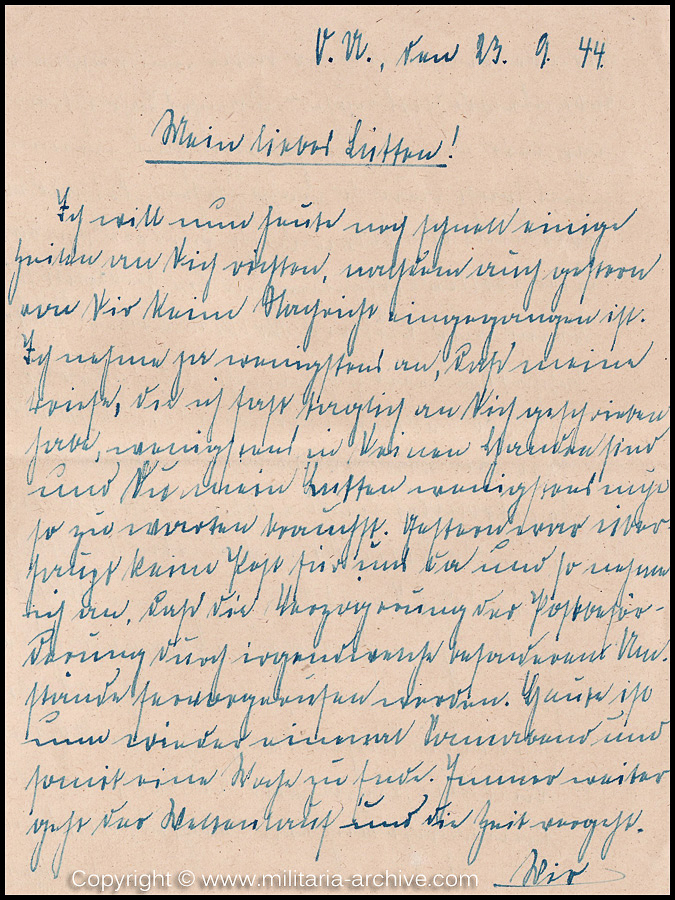 O. U., den 23. 9. 44.
Mein liebes Lütten!
Ich will nun heute noch schnell einige
Zeilen an Dich richten, nachdem auch gestern
von Dir keine Nachricht eingegangen ist.
Ich nehme ja wenigstens an, daß meine
Briefe, die ich fast täglich an Dich geschrieben
habe, wenigstens in Deinen Händen sind
und Du mein Lütten wenigstens nicht
so zu warten brauchst. Gestern war über-
haupt keine Post für uns da und so nehme
ich an, daß die Verzögerung der Postbeför-
derung durch irgendwelche besonderen Um-
stände hervorgerufen werden. Heute ist
nun wieder einmal Sonnabend und
somit eine Woche zu Ende. Immer weiter
geht der Weltenlauf und die Zeit vergeht.
Wir
Copyright © www.militaria-archive.com